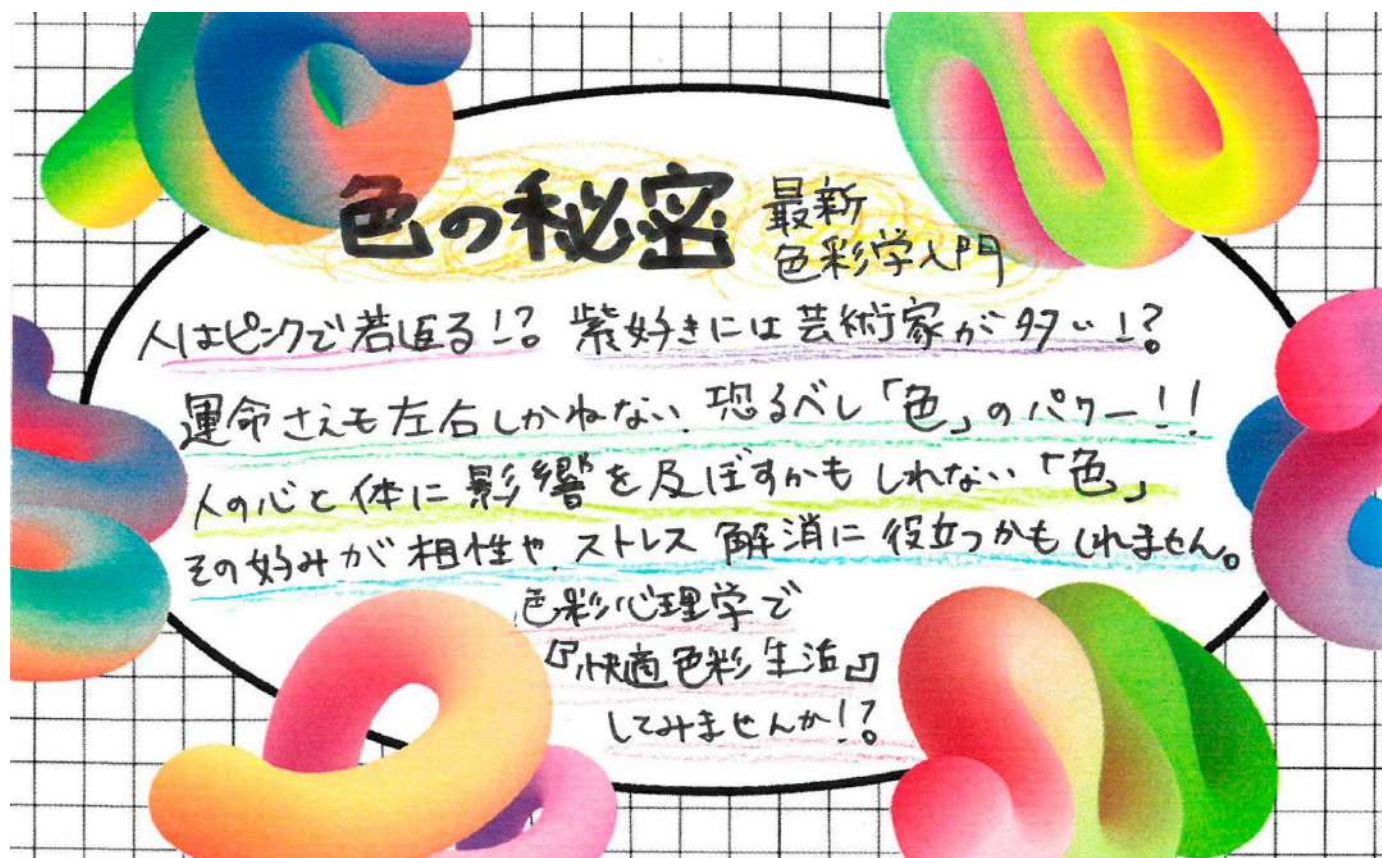 色の秘密 最新
色彩学入門
人はピンクで若返る!? 紫好きには芸術家が多い!?
運命さえも左右しかねない、恐るべし「色」のパワー!!
人の心と体に影響を及ぼすかもしれない「色」
その好みが相性や、ストレス解消に役立つかもしれません。
色彩心理学で
『快適色彩生活』
してみませんか!?